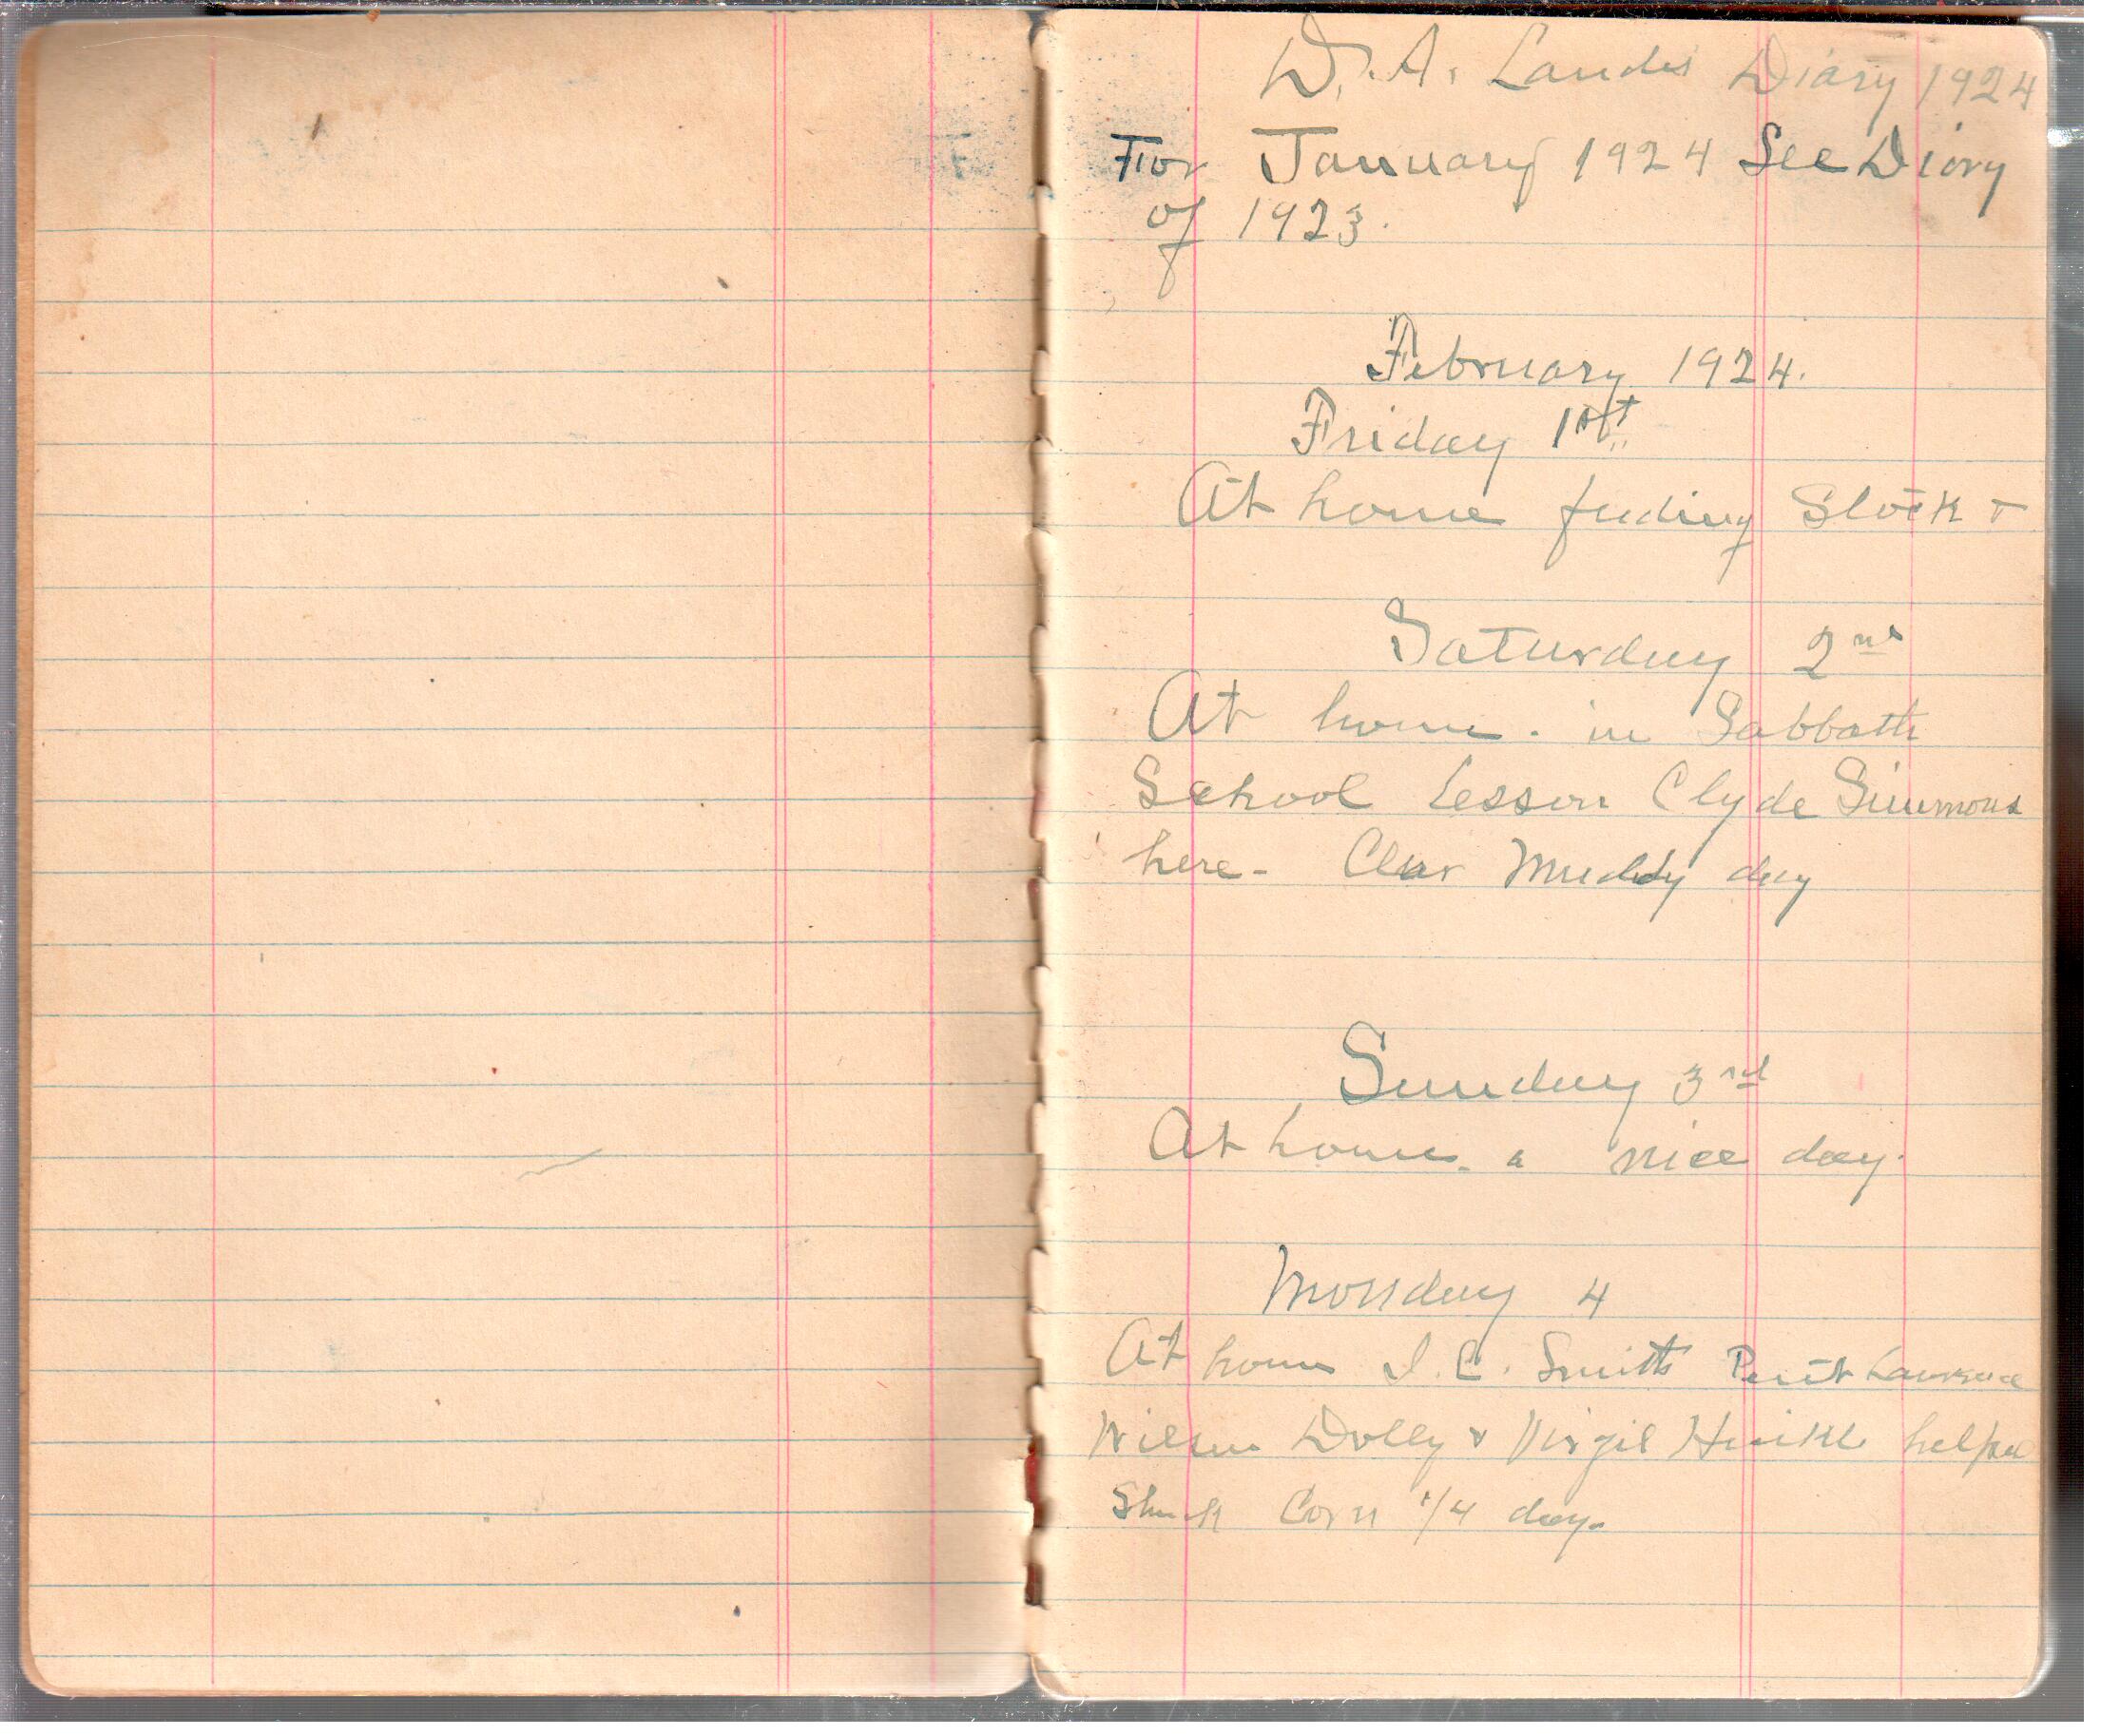 D. A. Landes Diary 1924
For January 1924 See Diary
of 1923.
February 1924.
Friday 1st
At home feeding Stock &
Saturday 2nd
At home. in Sabbath
School Lesson Clyde Simmons
here - Clear Muddy day
Sunday 3rd
At home. a nice day.
Monday 4
At home I. C. Smith Lawrence
Wilson Dolly & Virgil Hinkle helped
Shuck Corn 1/4 day.